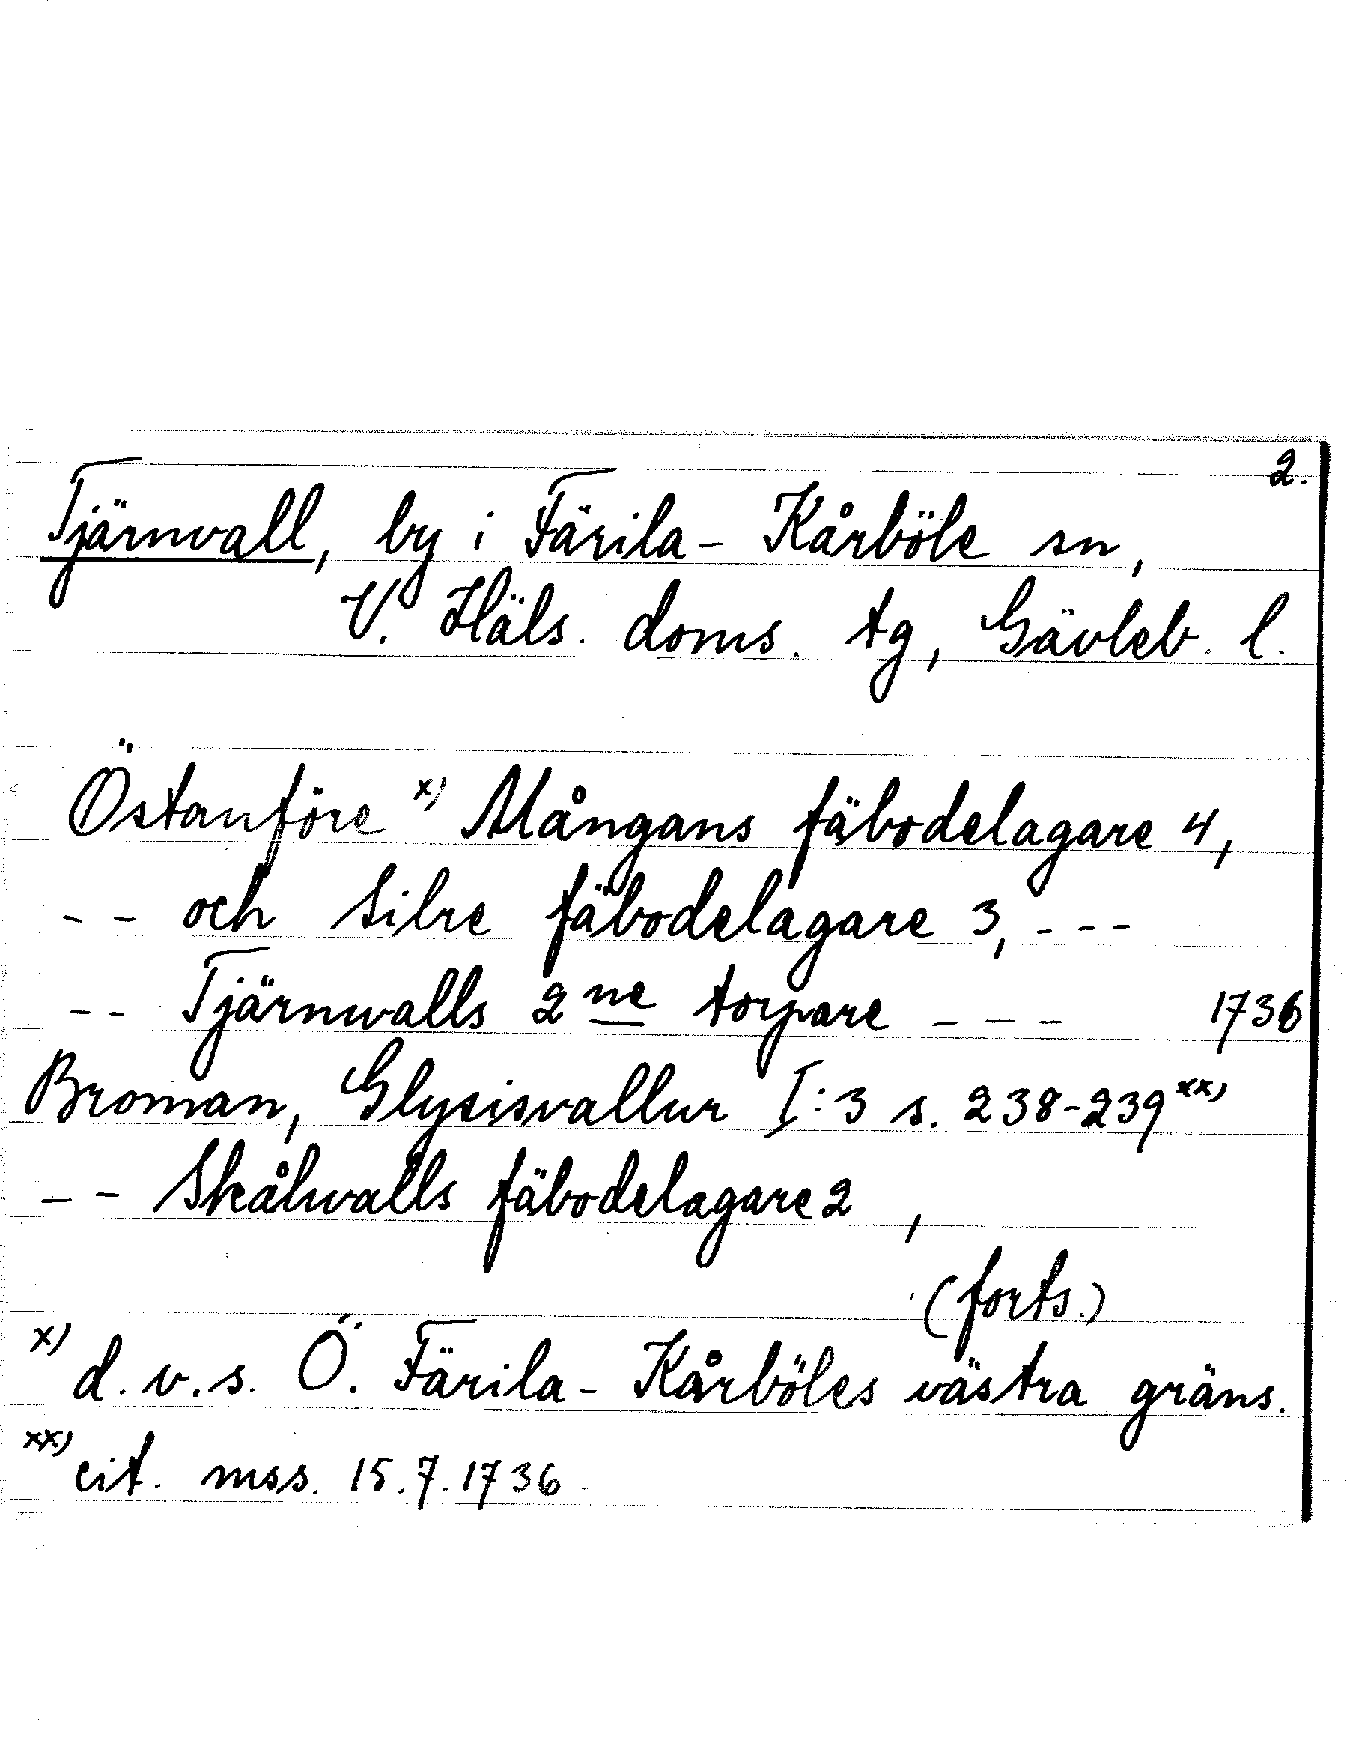 2.
Tjärnvall, by i Färila-Kårböle sn,
V. Häls. doms. tg, Gävleb. l.
Östanföre x) Mångans fäbodelagare 4,
-- och Silre fäbodelagare 3, ---
-- Tjärnwalls 2ne torpare --- 1736
Broman, Glysisvallur I:3 s. 238-239 xx)
-- Skålwalls fäbodelagare 2 ,
(forts.)
x) d.v.s. Ö. Färila-Kårböles västra gräns.
xx) cit. mss. 15.7.1736